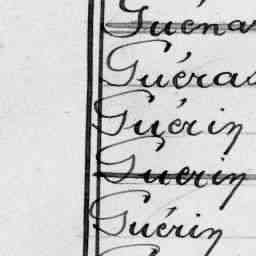 Guéna
Guéras
Guérin
Guerin
Guérin